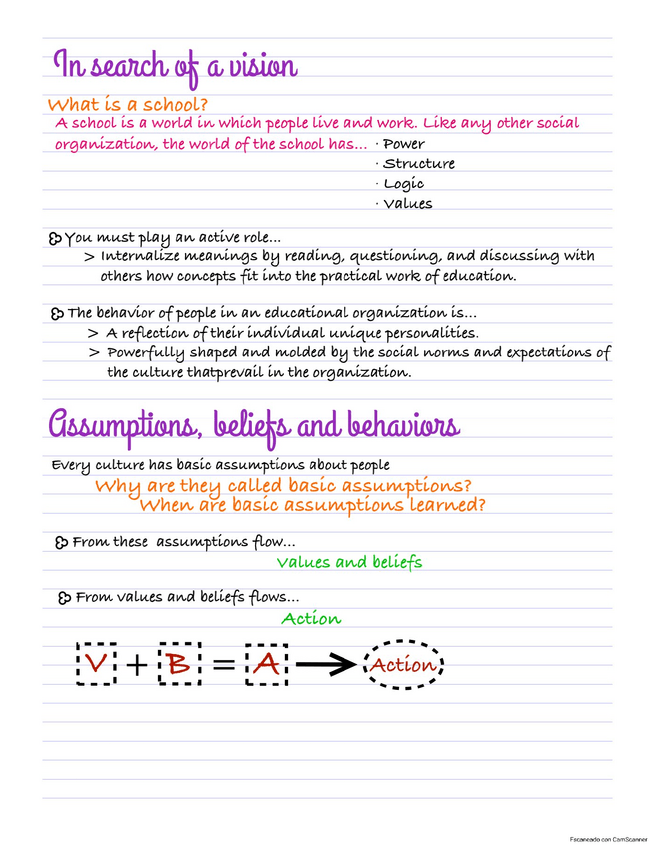 In search of a vision
What is a school?
A school is a world in which people live and work. Like any other social
organization, the world of the school has... · Power
· Structure
· Logic
· Values
You must play an active role...
> Internalize meanings by reading, questioning, and discussing with
others how concepts fit into the practical work of education.
The behavior of people in an educational organization is...
> A reflection of their individual unique personalities.
> Powerfully shaped and molded by the social norms and expectations of
the culture thatprevail in the organization.
Assumptions, beliefs and behaviors
Every culture has basic assumptions about people
Why are they called basic assumptions?
When are basic assumptions learned?
From these assumptions flow...
Values and beliefs
From values and beliefs flows...
Action
V + B = A → Action
Escaneado con CamScanner